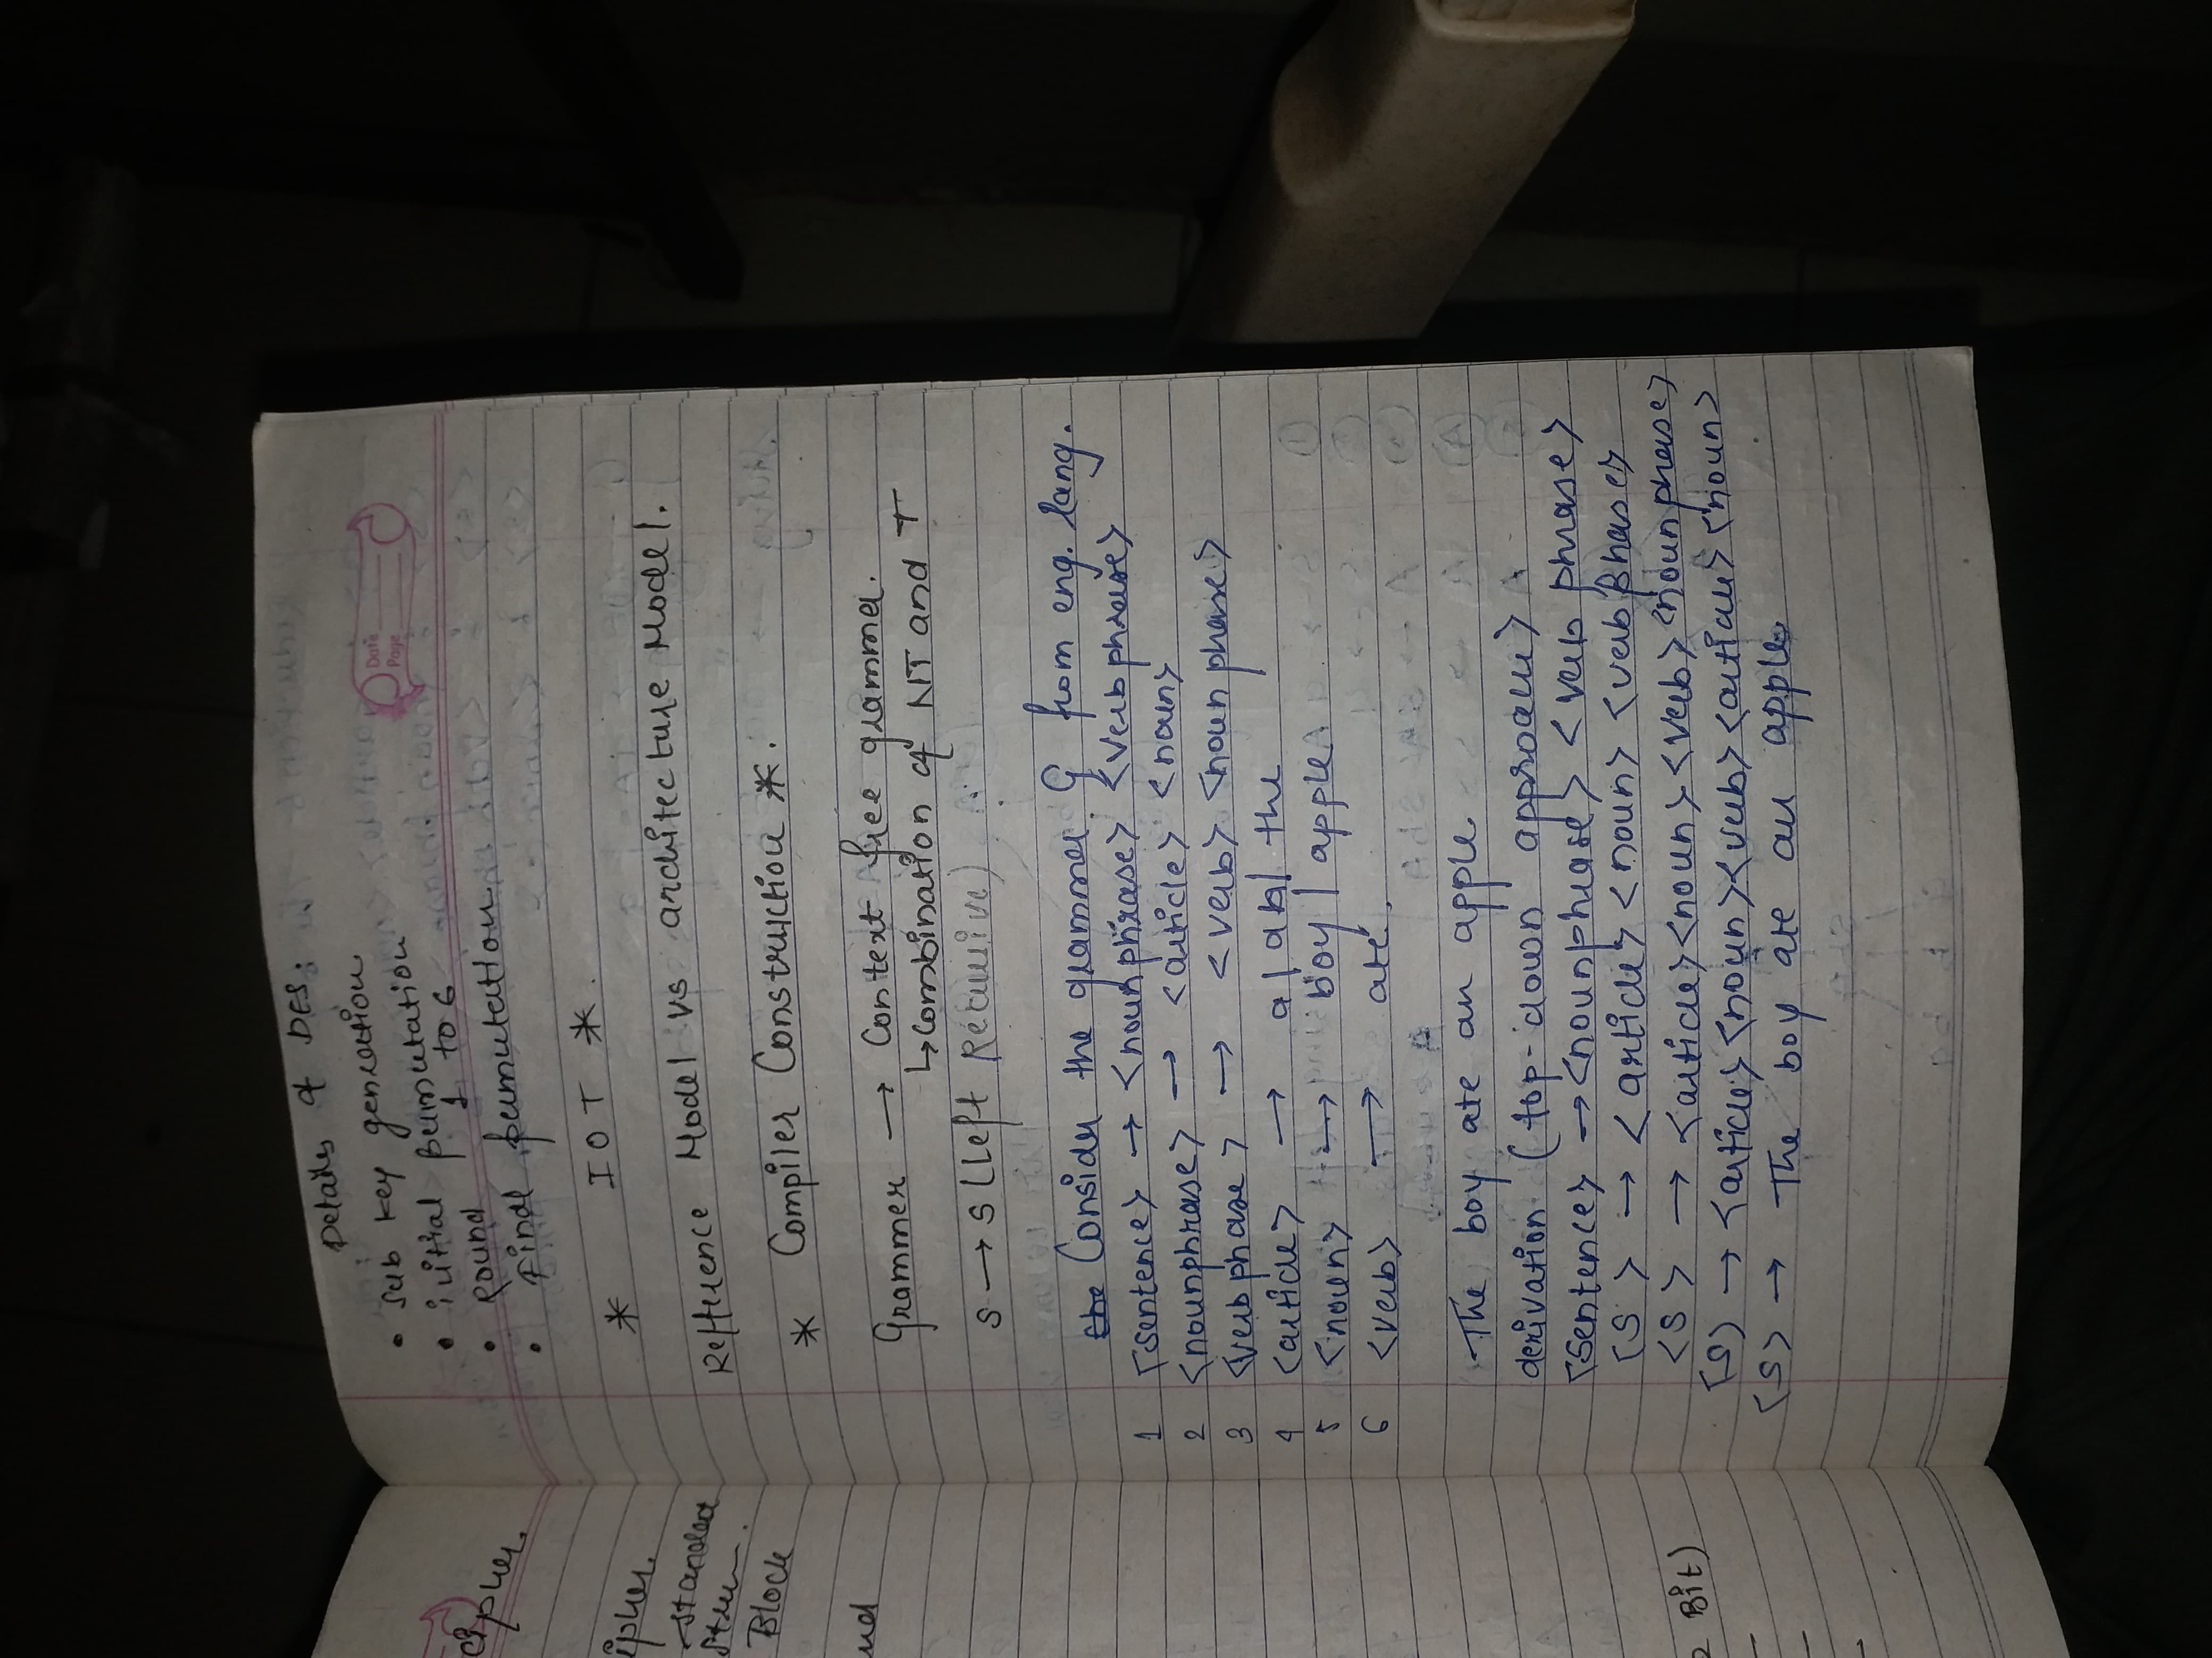 cipher.
ipher.
Block
und
2 Bit)
Details of DES.
Date
Page
• Sub key generation
• initial permutation
• Round 1 to 6
• Final permutation
* IOT *.
Refference Model vs architecture Model.
* Compiler Construction *.
Grammer → Context free grammer.
↳ Combination of NT and T
S → S (Left Recursive)
the Consider the grammer G from eng. lang.
1 <sentence> → <nounphrase> <Verbphrase>
2 <nounphrase> → <article> <noun>
3 <verbphase> → <verb> <noun phase>
4 <article> → a | an | the
5 <noun> → boy | apple
6 <verb> → ate.
The boy ate an apple
derivation (top-down approach>
<Sentence> → <nounphrase> <verb phrase>
<S> → <article> <noun> <verb phase>
<S> → <article> <noun> <verb> <noun phase>
<S> → <article> <noun> <verb> <article> <noun>
<S> → The boy ate an apple